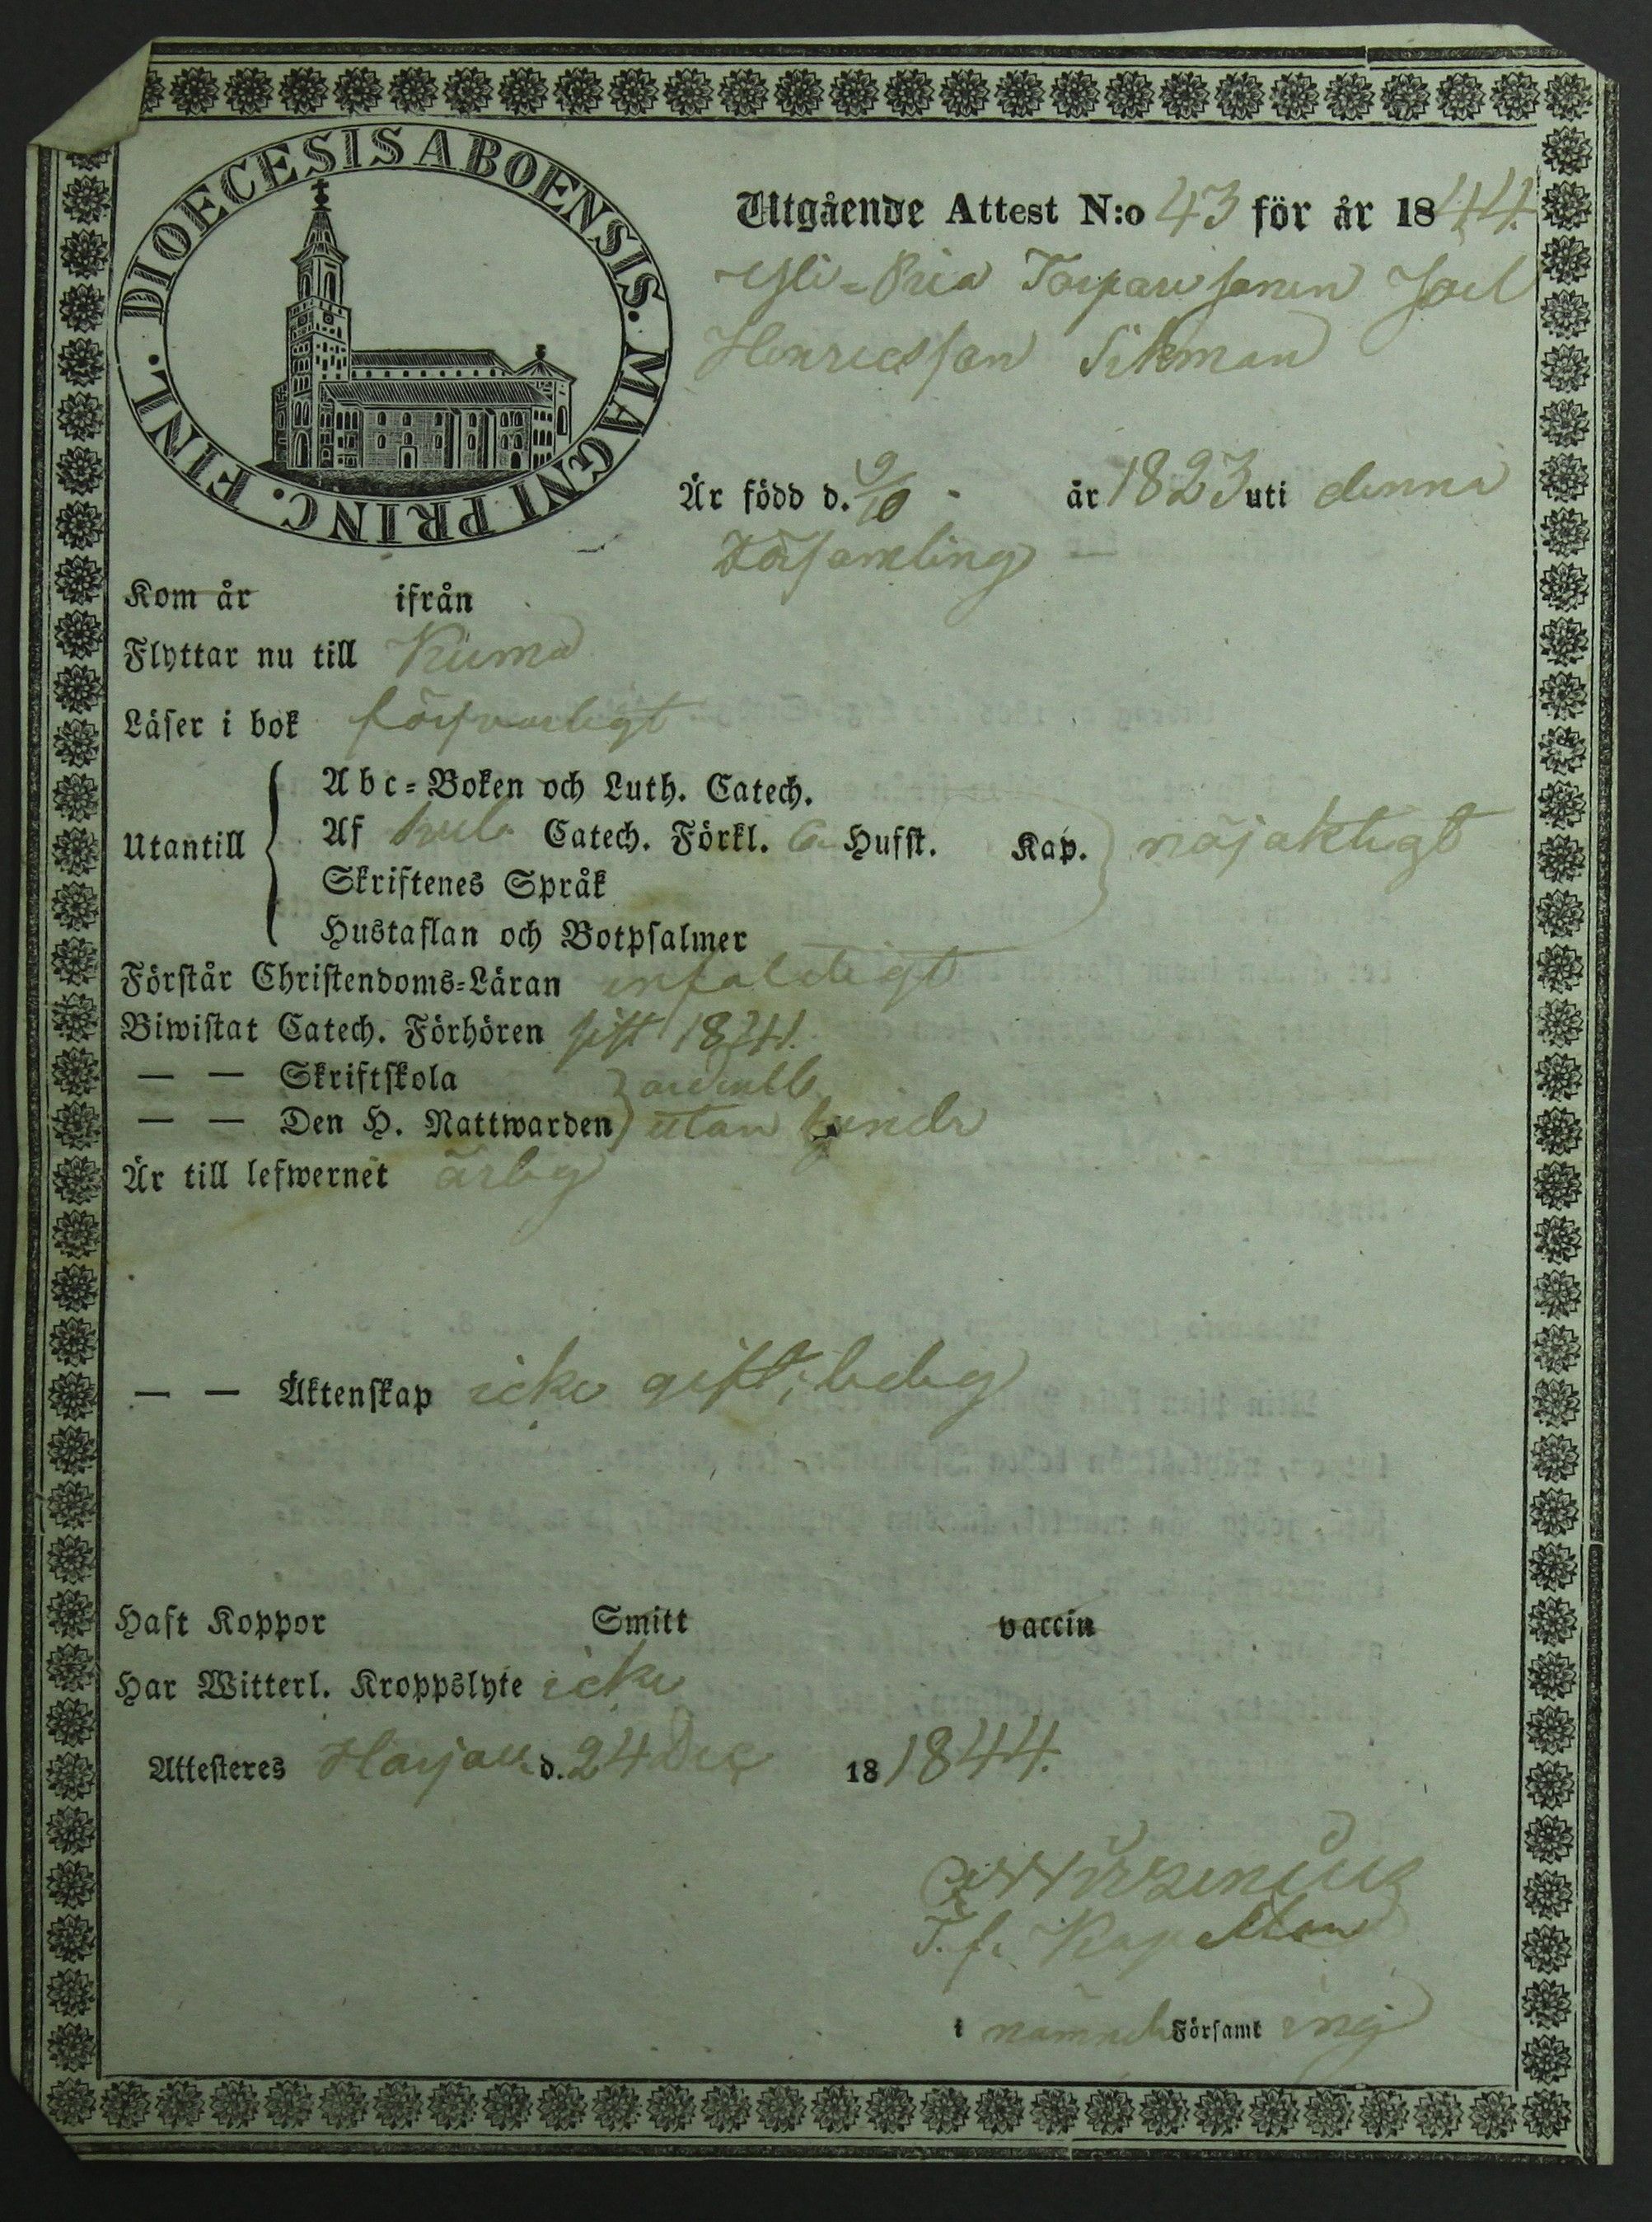 DIOECESIS ABOENSIS. MAGNI PRINC. FINL.
Utgående Attest N:o 43 för år 1844.
Yli=Pria Torparesonen Joel
Henricsson Sikman
Är född d. 9/10 år 1823 uti denna
Församling
Kom år ifrån
Flyttar nu till Kiuma
Läser i bok försvarligt
Abc=Boken och Luth. Catech.
Utantill Af Catech. Förkl. 6 Hufst. Kap. nöjaktigt
Skriftenes Språk
Hustaflan och Botpsalmer
Förstår Christendoms=Läran enfaldigt
Biwistat Catech. Förhören sist 1844.
— — Skriftskola
— — Den H. Nattwarden utan
Är till lefwernet ärlig
— — Äktenskap icke gift, ledig
Haft Koppor Smitt vaccin
Har Witterl. Kroppslyte icke
Attesteres d. 24 Dec 18 1844.
T.f. Kapellan
i nämnde Församl ing